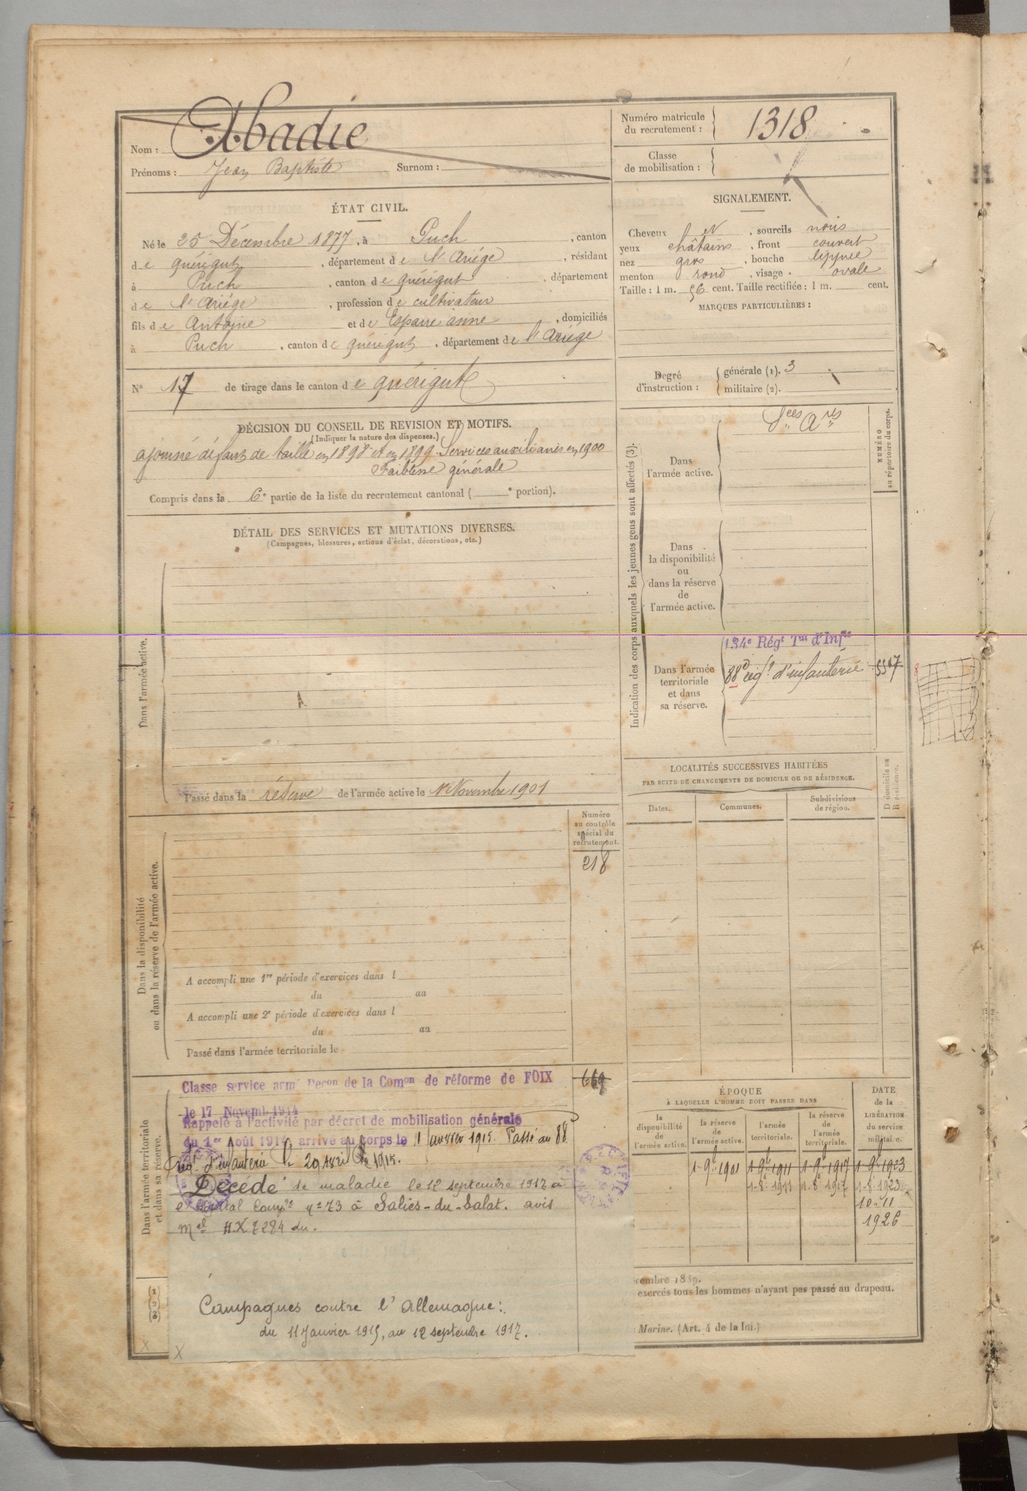 Nom : Abadie
Prénoms : Jean Baptiste Surnom :
Numéro matricule
du recrutement : 1318
Classe
de mobilisation :
ÉTAT CIVIL.
Né le 25 Décembre 1877, à Puch, canton
de Quérigut, département de l'Ariège, résidant
à Puch, canton de Quérigut, département
de l'Ariège, profession de cultivateur
fils de Antoine et de Espaire anne, domiciliés
à Puch, canton de Quérigut, département de l'Ariège
N° 17 de tirage dans le canton de Quérigut
SIGNALEMENT.
Cheveux et, sourcils noirs
yeux châtains, front couvert
nez gros, bouche lippue
menton rond, visage ovale
Taille : 1 m. 56 cent. Taille rectifiée : 1 m. cent.
MARQUES PARTICULIÈRES :
Degré
d'instruction :
générale (1). 3
militaire (2).
DÉCISION DU CONSEIL DE REVISION ET MOTIFS.
(Indiquer la nature des dispenses.)
ajourné défaut de taille en 1898 et en 1899. Services auxiliaires en 1900
Faiblesse générale
Compris dans la 6e partie de la liste du recrutement cantonal ( e portion).
DÉTAIL DES SERVICES ET MUTATIONS DIVERSES.
(Campagnes, blessures, actions d'éclat, décorations, etc.)
Dans l'armée active.
Passé dans la réserve de l'armée active le 1er Novembre 1901
Indication des corps auxquels les jeunes gens sont affectés (3).
NUMÉRO
au répertoire du corps.
Dans
l'armée active.
Sces Ars
Dans
la disponibilité
ou
dans la réserve
de
l'armée active.
Dans l'armée
territoriale
et dans
sa réserve.
134e Régt Tal d'Infie
88e régt d'infanterie
LOCALITÉS SUCCESSIVES HABITÉES
PAR SUITE DE CHANGEMENTS DE DOMICILE OU DE RÉSIDENCE.
Dates. Communes. Subdivisions
de région.
D domicile ou
R résidence.
Numéro
au contrôle
spécial du
recrutement.
218
Dans la disponibilité
ou dans la réserve de l'armée active.
A accompli une 1re période d'exercices dans l
du au
A accompli une 2e période d'exercices dans l
du au
Passé dans l'armée territoriale le
Dans l'armée territoriale
et dans sa réserve.
Classe service armé Décon de la Comon de réforme de FOIX
le 17 Novemb. 1914
669
Rappelé à l'activité par décret de mobilisation générale
du 1er Août 1914, arrivé au corps le 11 Janvier 1915. Passé au 88e
rég. d'infanterie le 29 avril 1915.
Décédé de maladie le 12 septembre 1917 à
l'hôpital Compre n° 73 à Salies-du-Salat. avis
mel HX 7284 du.
Campagnes contre l'Allemagne :
du 11 Janvier 1915, au 12 septembre 1917.
ÉPOQUE
À LAQUELLE L'HOMME DOIT PASSER DANS
la
disponibilité
de
l'armée active.
la réserve
de
l'armée active.
l'armée
territoriale.
la réserve
de
l'armée
territoriale.
DATE
de la
LIBÉRATION
du service
militaire.
1-9bre 1901 1-9bre 1911 1-9bre 1917 1-9bre 1923
10-11
1926
cembre 1889.
exercés tous les hommes n'ayant pas passé au drapeau.
Marine. (Art. 4 de la loi.)